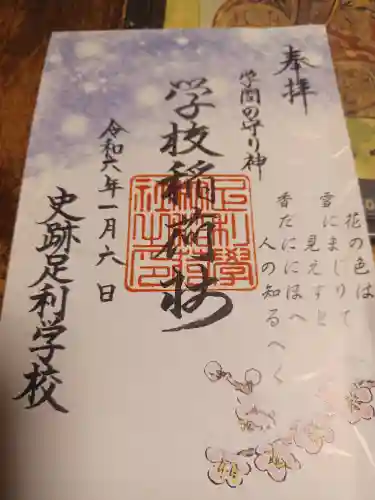 奉拝
学問の守り神
学校稲荷社
令和六年一月六日
史跡足利学校
花の色は
雪にまじりて
見えずと
香だににほへ
人の知るべく